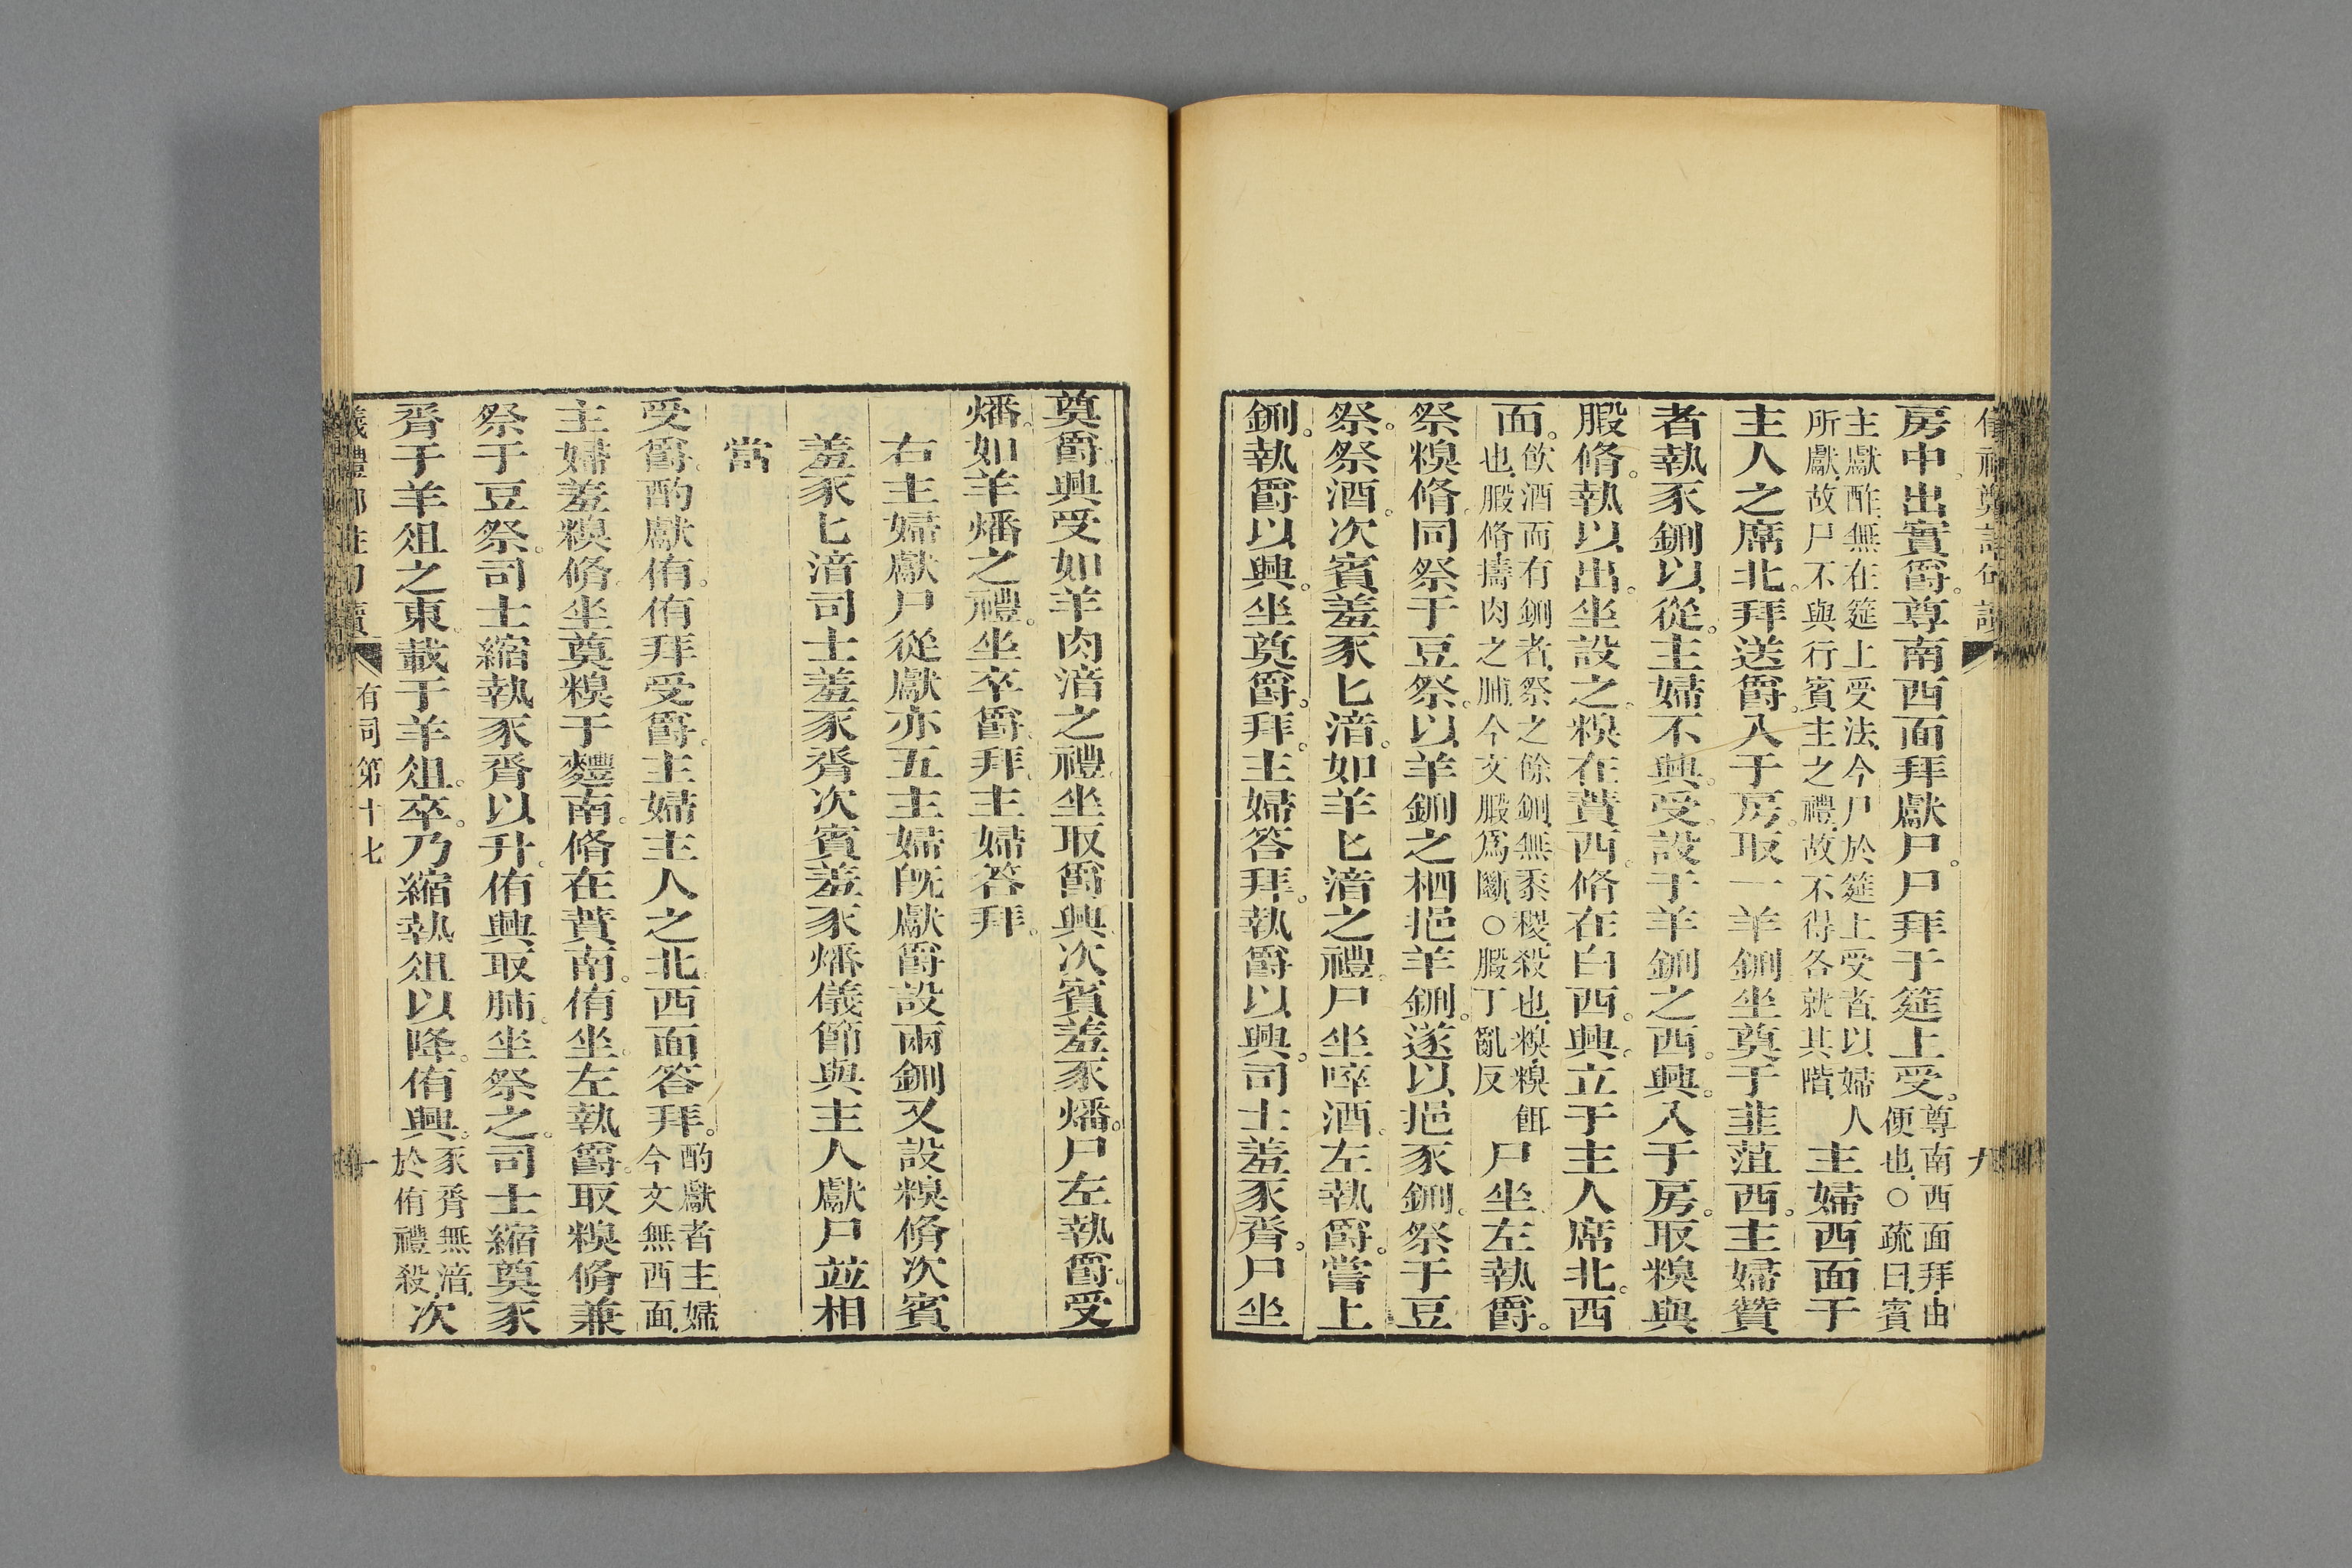 房中。出實爵。尊南西面拜獻尸。尸拜于筵上受。尊南西面拜，由便也。○疏曰，賓
主獻酢，無在筵上受法，今尸於筵上受者，以婦人所獻，故尸不與行賓主之禮，故不得各就其階，主婦西面于
主人之席北。拜送爵。入于房。取一羊鉶坐奠于韭菹西。主婦贊
者執豕鉶以從。主婦不興。受。設于羊鉶之西。興。入于房。取糗與
腶脩。執以出。坐設之。糗在蕡西。脩在白西。興。立于主人席北。西
面。飲酒而有鉶者，祭之餘鉶，無黍稷，殺也，糗，糗餌也，腶脩，擣肉之脯，今文腶爲斷。○腶丁亂反尸坐。左執爵。
祭糗脩。同祭于豆祭。以羊鉶之柶挹羊鉶。遂以挹豕鉶。祭于豆
祭。祭酒。次賓羞豕匕湆。如羊匕湆之禮。尸坐啐酒。左執爵。嘗上
鉶。執爵以興。坐奠爵。拜。主婦答拜。執爵以興。司士羞豕脀。尸坐
奠爵。興受如羊肉湆之禮。坐取爵興。次賓羞豕燔。尸左執爵。受
燔。如羊燔之禮。坐卒爵。拜。主婦答拜。
右主婦獻尸從獻亦五主婦既獻爵設兩鉶又設糗脩次賓
羞豕匕湆司士羞豕脀次賓羞豕燔儀節與主人獻尸竝相
當
受爵。酌獻侑。侑拜受爵。主婦主人之北。西面答拜。酌獻者主婦，今文無西面，
主婦羞糗脩。坐奠糗于麷南。脩在蕡南。侑坐。左執爵。取糗脩兼
祭于豆祭。司士縮執豕脀以升。侑興取肺。坐祭之。司士縮奠豕
脀于羊俎之東。載于羊俎。卒。乃縮執俎以降。侑興。豕脀無湆，於侑禮殺，次
有司第十七